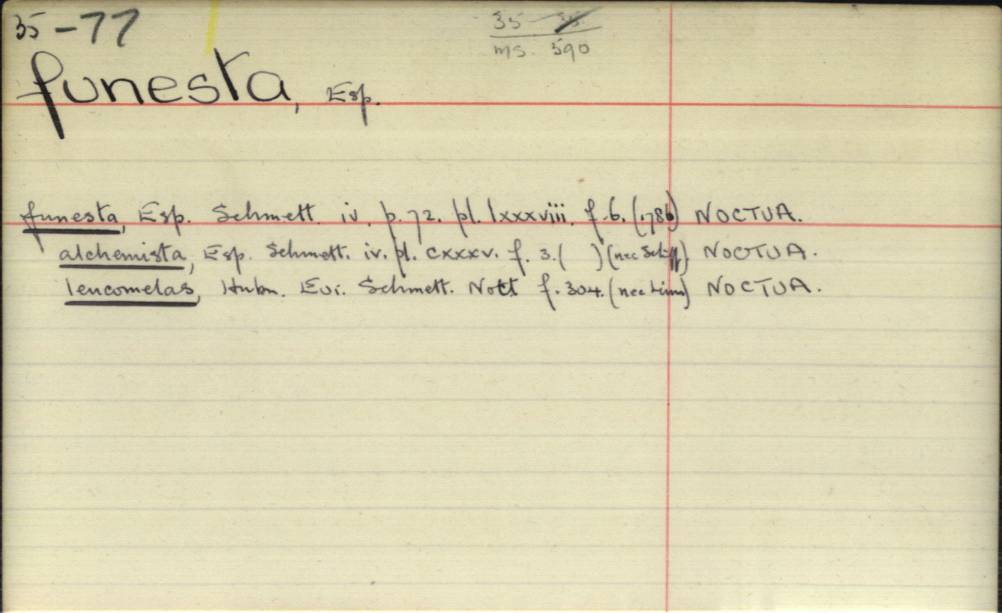 35-77
35
ms. 590
funesta, Esp.
funesta, Esp. Schmett. iv. p. 72. pl. lxxxviii. f. 6. (1786) NOCTUA.
alchemista, Esp. Schmett. iv. pl. cxxxv. f. 3. ( ) (nec Schiff) NOCTUA.
leucomelas, Hubn. Eur. Schmett. Noct f. 304. (nec Linn) NOCTUA.